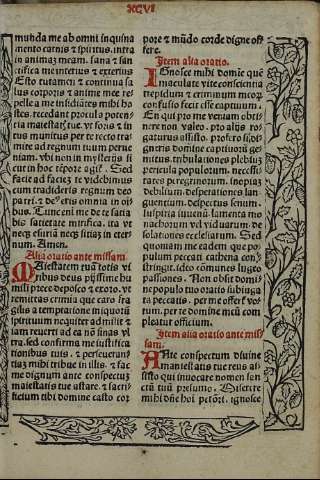 XCVI
munda me ab omni inquina
mento carnis ⁊ spiritus. intra
in animaz meam. sana ⁊ san
ctifica me interius ⁊ exterius
Esto tutamen ⁊ continua sa
lus corporis ⁊ anime mee re
pelle a me insidiātes mihi ho
stes. recedant procul a poten-
cia maiestatꝭ tue. vt foris ⁊ in
tus munitus per te recto tra
mite ad regnum tuum perue
niam. vbi non in mysteriis si
cut in hoc tēpore agit̄. Sed
facie ad faciez te videbimus
cum tradideris regnum deo
patri. ⁊ deꝰ eris omnia in oī
bus. Tunc eni me de te sacia
bis sacietate mirifica. ita vt
nec esuriā necꝫ sitiaz in eter
num. Amen.
Alia oratio ante missam.
Maiestatem tuā totis vi
ribus deus pijssime hu
mili prece deposco ⁊ exoro. vt
remittas crimia que caro fra
gilis a temptatione iniquorū
spirituum nequiter admisit ⁊
iam reuerti ad ea nō sinas vl
tra. sed confirma me iustifica
tionibus tuis. ⁊ perseueran
tiaz mihi tribue in illis. ⁊ fac
me dignum ante conspectuz
maiestatis tue astare. ⁊ sacri
ficium tibi domine casto cor
pore ⁊ mūdo corde digne off
ferre.
Item alia oratio.
Ignosce mihi domie quē
maculate vite conscientia
trepidum ⁊ criminum mcor
confusio fecit esse captiuum.
En qui pro me veniam obtine
re non valeo. pro alijs ro
gaturus assisto. profero si di
gneris domine captiuorū ge
mitus. tribulationes plebiuz
pericula populorum. necessi
tates peregrinorum. inopias
debilium. desperationes lan-
guentium. defectus senum.
suspiria iuuenū. lamenta mo
nachorum vel viduarum. de
solationes ecclesiarum. Sed
quoniam me eadem que po
pulum peccati cathena con-
stringit. idcco cōmunes lugeo
passiones. Non obsit domi
ne populo tuo oratio subiuga
ta peccatis. per me offert̄ vo
tum. per te domine meū com
pleatur officium.
Item alia oratio ante mis
sam.
Ante conspectum diuine
maiestatis tue reus as
sisto qui inuocare nomen san
ctū tuū presumo. Miserere
mihi dn̄e hoī petōri. ignosce